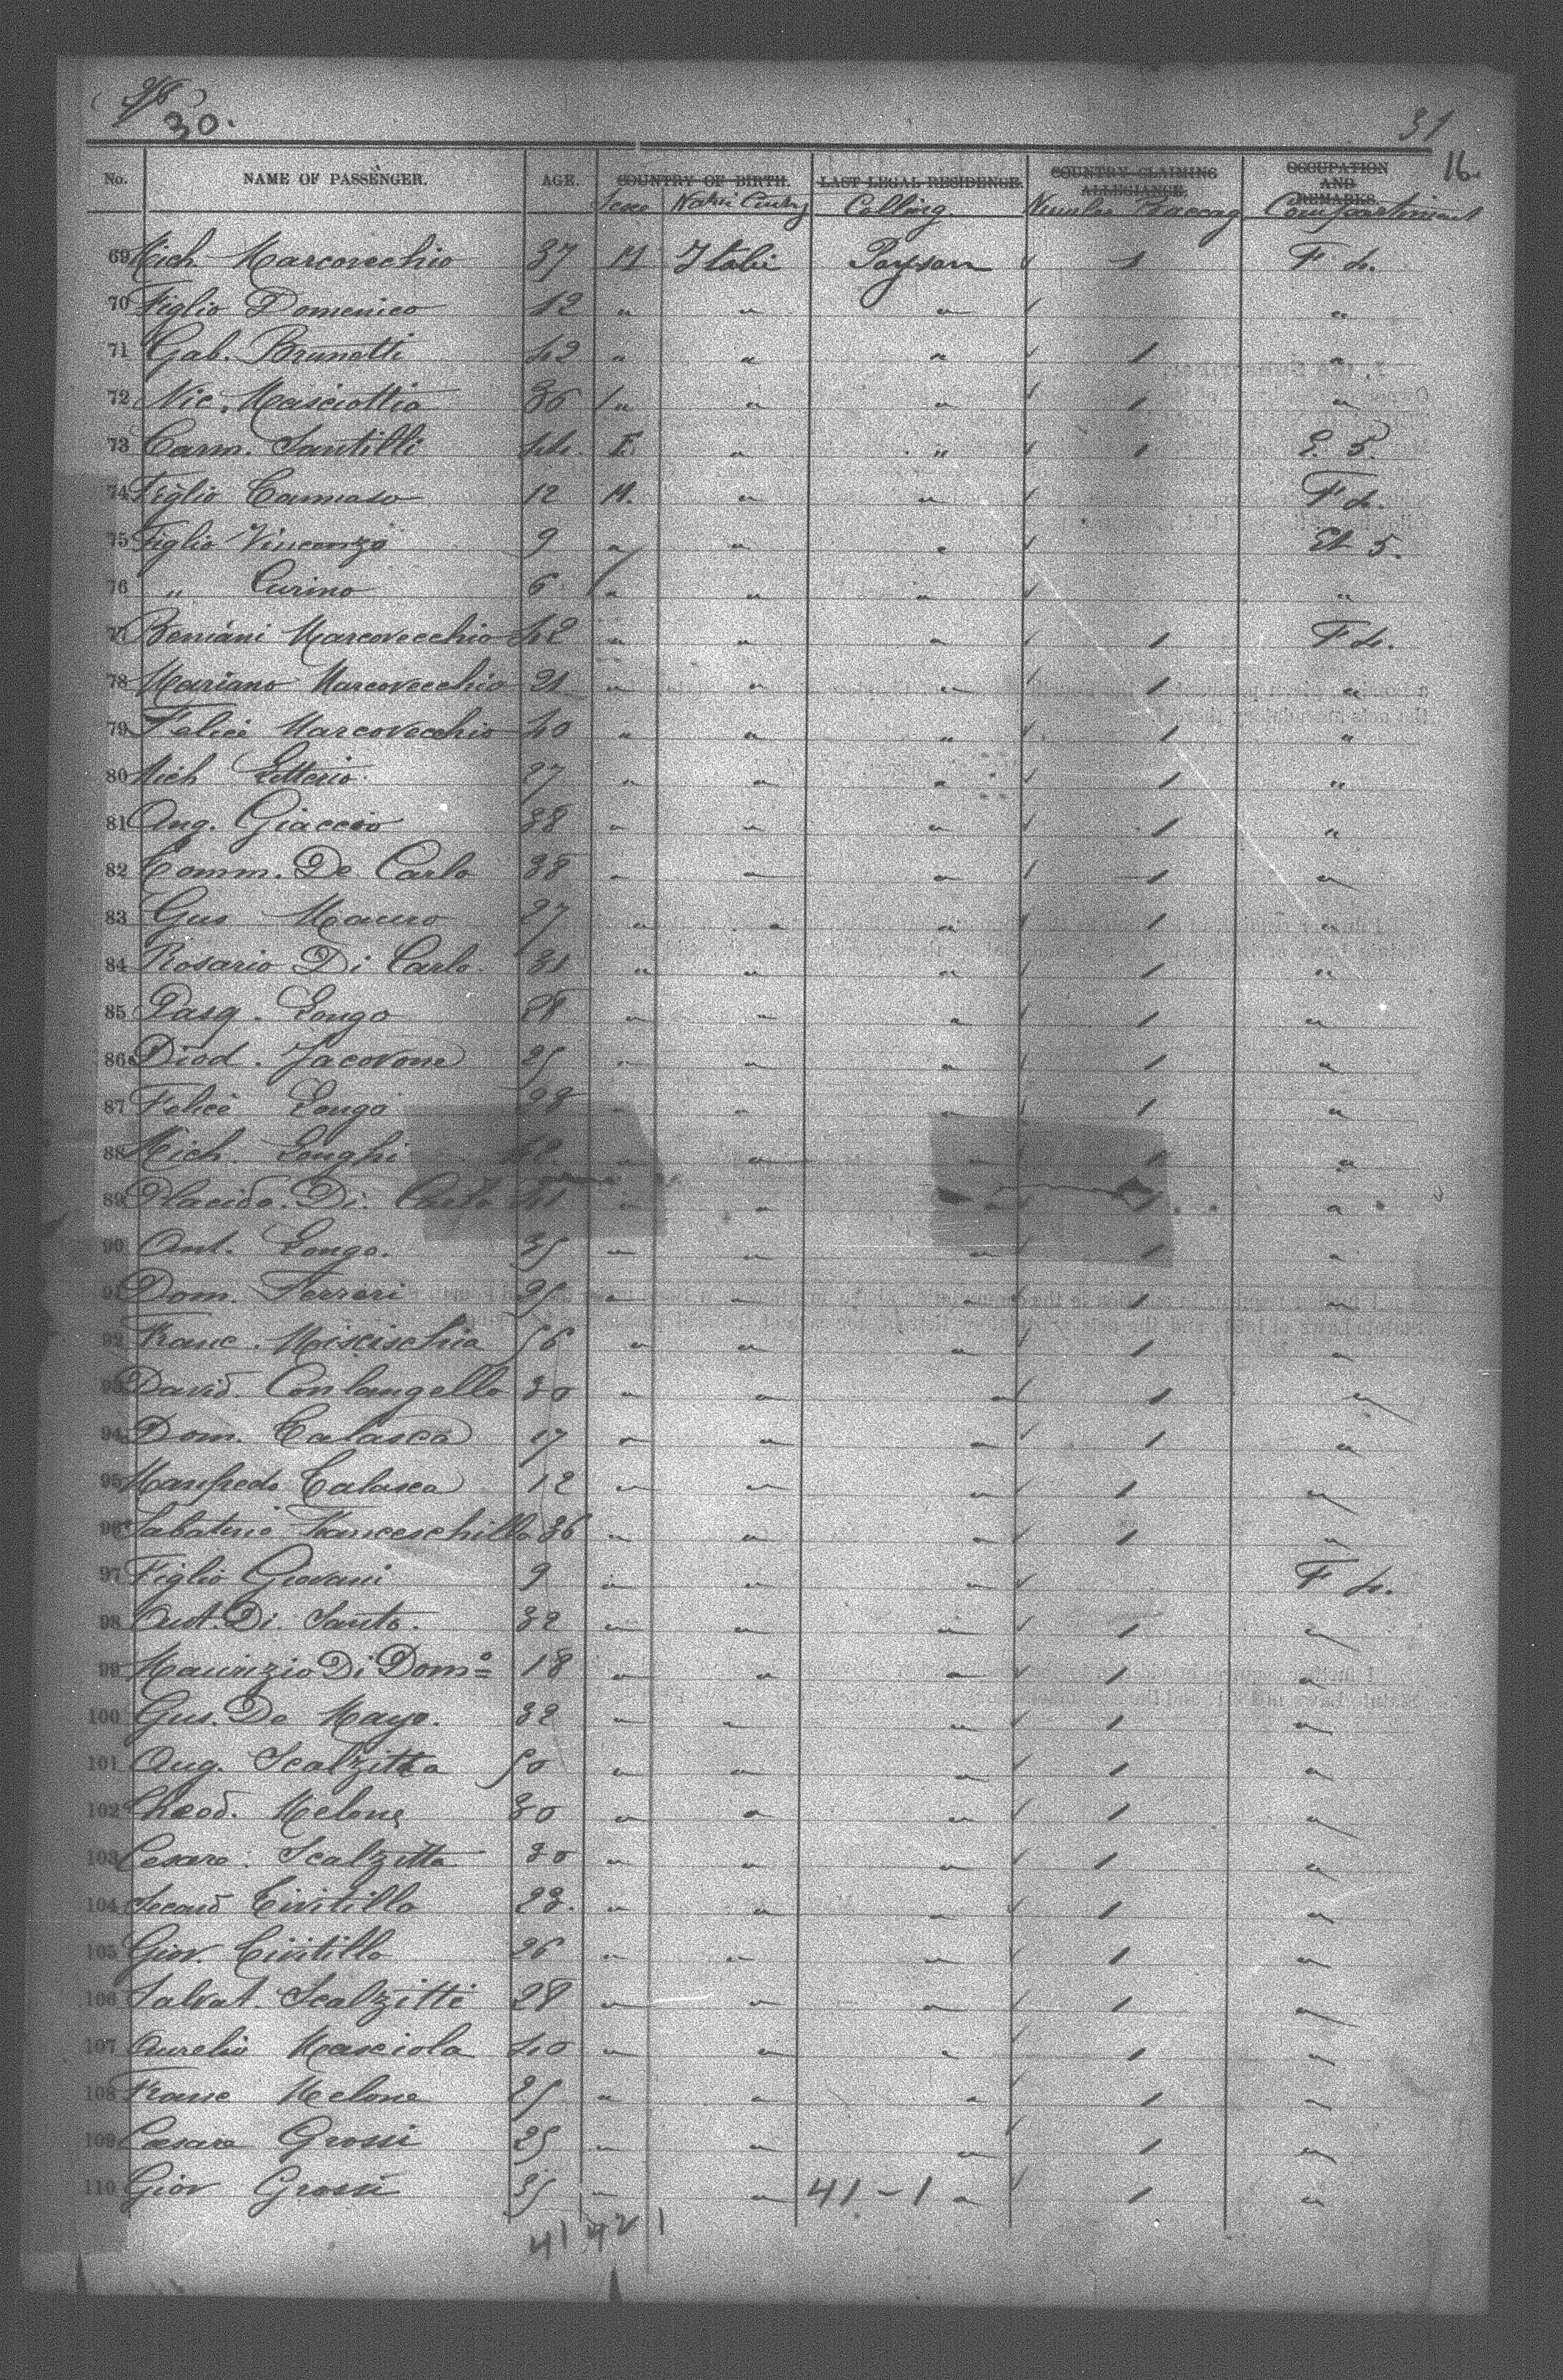 30.
31
16
No. NAME OF PASSENGER. AGE. COUNTRY OF BIRTH. LAST LEGAL RESIDENCE. COUNTRY CLAIMING ALLEGIANCE. OCCUPATION AND REMARKS.
Sexe Calling Compartiment
69 Mich Marcovechio 37 M Italie Paysan 1 F 4.
70 Figlio Domenico 12 " " "  "
71 Gab. Brunetti 42 " " " 1 "
72 Nic. Masciottia 36 " " " 1 "
73 Carm. Santilli 44. F. " " 1 E. 5.
74 Figlio Tammaso 12 M. " " F 4.
75 Figlio Vincenzo 9 " " " Et 5.
76 " Curino 6 " " " "
77 Beniani Marcovecchio 42 " " " 1 F 4.
78 Mariano Marcovecchio 21 " " " 1 "
79 Felice Marcovecchio 40 " " " 1 "
80 Mich Litterio 27 " " " 1 "
81 Ang. Giaccio 38 " " " 1 "
82 Tomm. De Carlo 38 " " " 1 "
83 Gus Mauro 27 " " " 1 "
84 Rosario Di Carlo. 31 " " " 1 "
85 Pasq. Longo 28 " " " 1 "
86 Diod. Jacovone 25 " " " 1 "
87 Felice Longo 28 " " " 1 "
88 Mich. Longhi 42 " " " 1 "
89 Placido. Di. Carlo 41 " " " 1 "
90 Ant. Longo. 35 " " " 1 "
91 Dom. Ferreri 25 " " " 1 "
92 Franc. Miscischia 56 " " " 1 "
93 David. Conlangello 30 " " " 1 "
94 Dom. Calasca 17 " " " 1 "
95 Manfredo Calasca 12 " " " 1 "
96 Sabatino Franceschilla 36 " " " 1 "
97 Figlio Giovani 9 " " " F 4.
98 Ant. Di. Santo. 32 " " " 1 "
99 Maurizio Di Dom° 18 " " " 1 "
100 Gus. De Mayo. 32 " " " 1 "
101 Ang. Scalzitta 50 " " " 1 "
102 Theod. Melone 30 " " " 1 "
103 Cesare. Scalzitta 30 " " " 1 "
104 Second Civitillo 23. " " " 1 "
105 Giov. Civitillo 26 " " " 1 "
106 Salvat. Scalzitti 28 " " " 1 "
107 Aurelio Masciola 40 " " " 1 "
108 Franc Melone 25 " " " 1 "
109 Cesare Grossi 25 " " " 1 "
110 Giov Grossi 35 " " 41-1 " 1 "
41 42 1